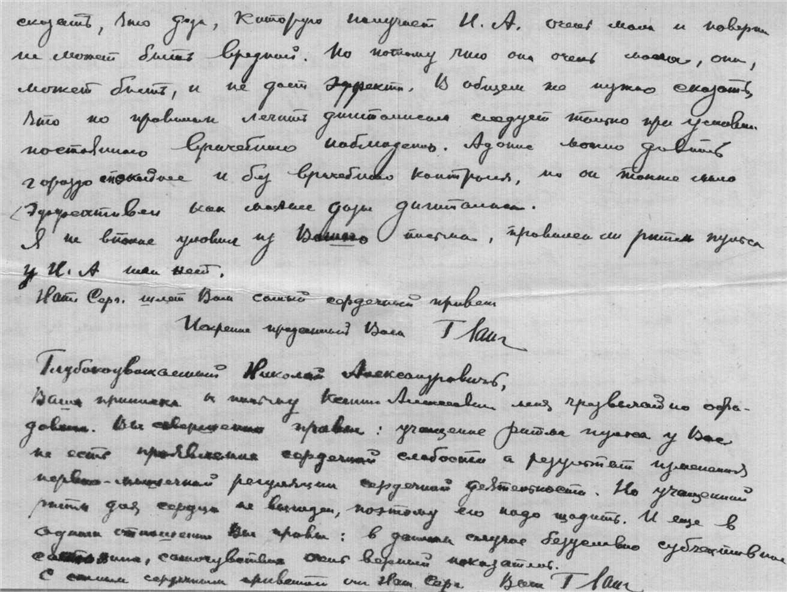 сказать, что доза, которую получает Н. А. очень мала и поверьте
не может быть вредной. Но потому что она очень мала, она,
может быть, и не даст эффекта. В общем же нужно сказать,
что по правилам лечить дигиталисом следует только при условии
постоянного врачебного наблюдения. Адонис можно давать
гораздо спокойнее и без врачебного контроля, но он также мало
эффективен как малые дозы дигиталиса.
Я не вполне уловил из Вашего письма, правилен ли ритм пульса
у Н. А или нет.
Нат. Серг. шлет Вам самый сердечный привет
Искренне преданный Вам Г Ланг
Глубокоуважаемый Николай Александрович,
Ваша приписка к письму Ксении Алексеевны меня чрезвычайно обра-
довала. Вы совершенно правы: учащение ритма пульса у Вас
не есть проявление сердечной слабости а результат изменения
нервно-мышечной регуляции сердечной деятельности. Но учащенный
ритм для сердца не выгоден, поэтому его надо щадить. И еще в
одном отношении Вы правы: в данном случае безусловно субъективное
состояние, самочувствие очень верный показатель.
С самым сердечным приветом от Нат Серг Ваш Г Ланг